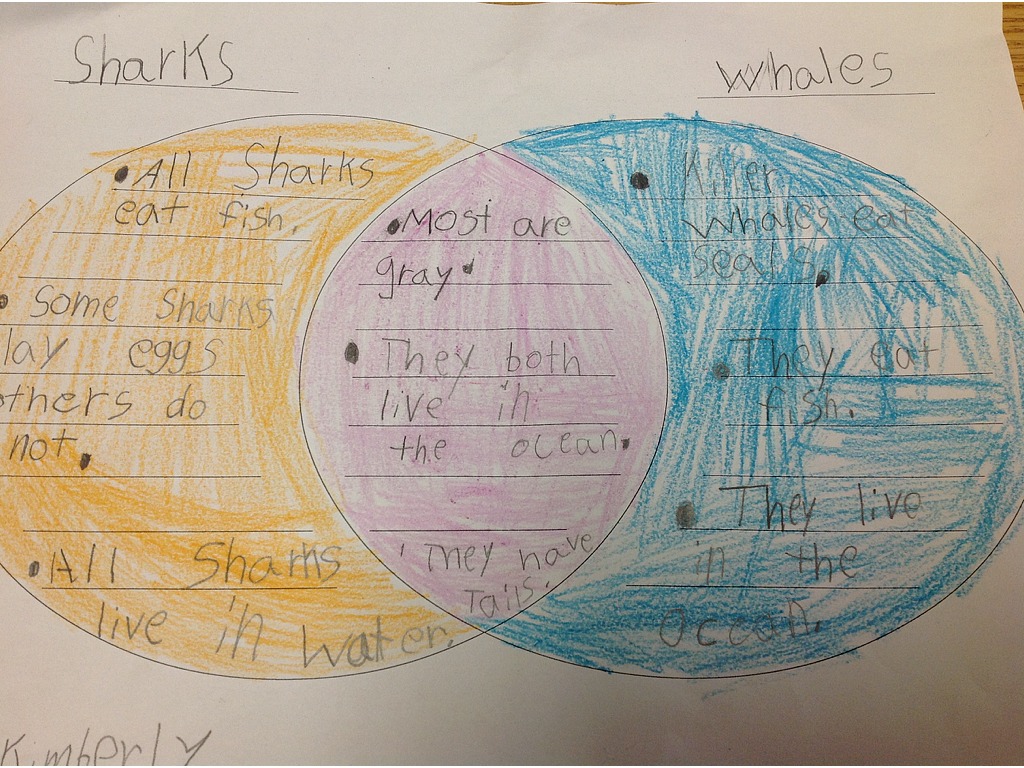 Sharks
Whales
• All Sharks
eat fish.
• Some Sharks
lay eggs
others do
not.
• All Sharks
live in water.
• Most are
gray.
• They both
live in
the ocean.
' They have
Tails.
• Killer
Whales eat
seals.
• They eat
fish.
• They live
in the
Ocean.
Kimberly